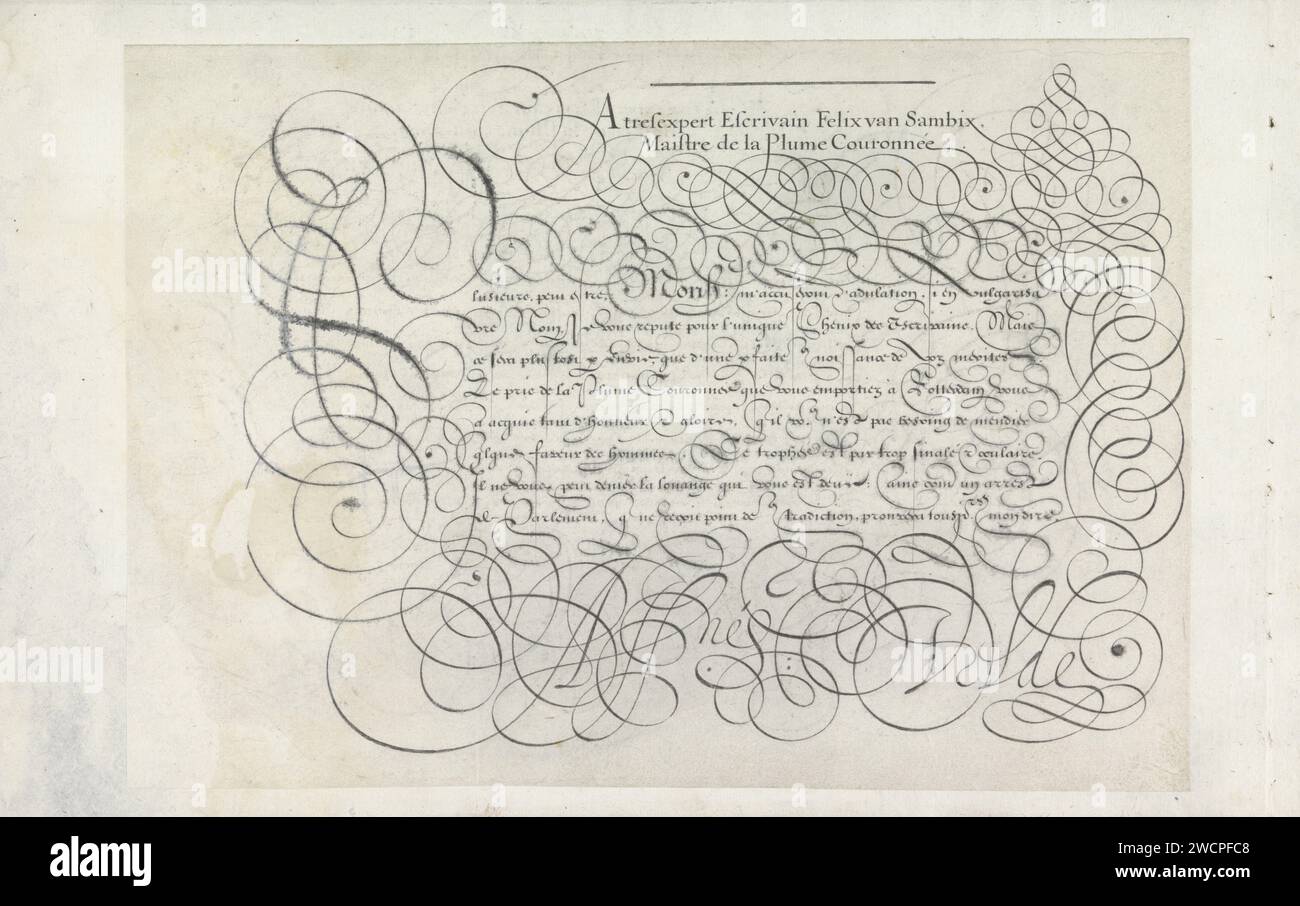 A tresexpert Escrivain Felix van Sambix.
Maistre de la Plume Couronnée
Monsr: m'accuseront d'adulation, si en vulgarisa
lusieurs, peut estre,
vre Nom, Je vous repute pour l'unique Phenix des Escrivains. Mais
ce sera plus tost envie, que d'une faite noissance de Voz merites.
Le pris de la Plume Couronnee que vous emportiez à Rotterdam vous
a acquis tant d'Honneur & gloire, qu'il n'est pas besoing de mendier
quelque faveur des hommes. Ce trophée est par trop signalé & oculaire.
Il ne vous peut denier la louange qui vous est deue: ains com un arrest
de Parlement, que ne reçoit point de tradiction, prouvera tousjours mon dire.
Velde
alamy
Image ID: 2WCPFC8
www.alamy.com